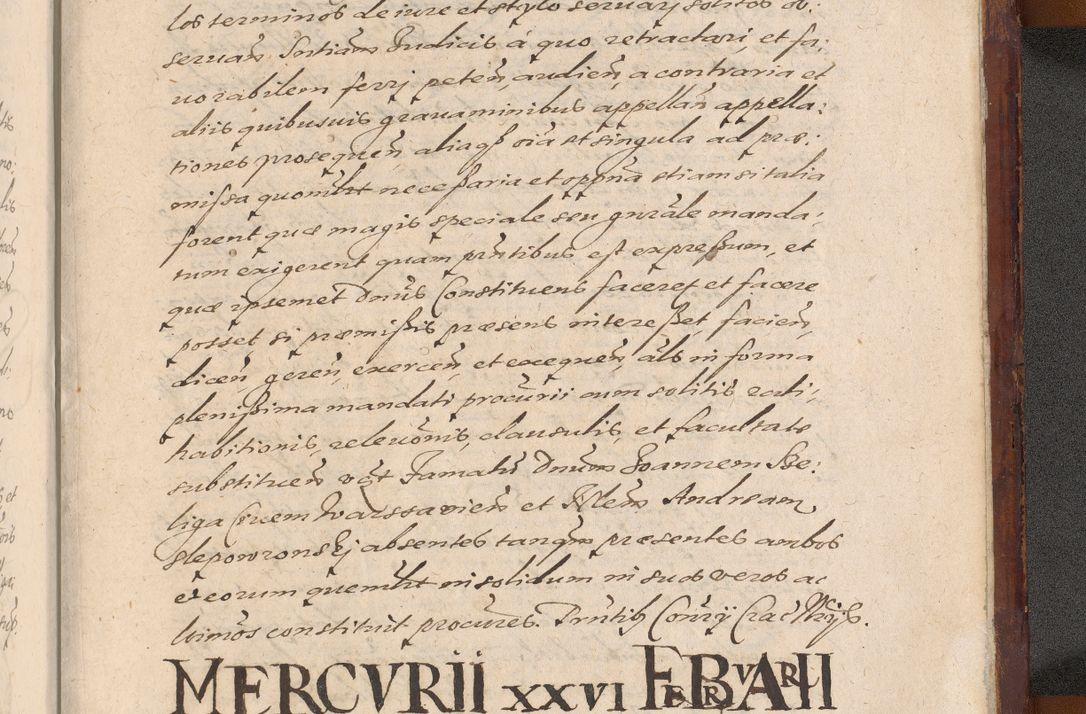 los terminos de iure et stylo seruarj solitos ob:
seruan̄ Sntiam̄ Iudicis á quo retractari, et fa:
uorabilem ferrj peten̄, audien̄, a contraria et
aliis quibusuis grauaminibus appellan̄ appella:
tiones prosequen̄ aliaqȝ oīa et singula ad præ:
missa quomlt̄ necessaria et oppnā etiam si talia
forent quæ magis speciale seu gnrāle manda:
tum exigerent quam pntībus est expressum, et
quæ ipsemet Dnūs Constituens faceret et facere
posset si præmissis præsens interesset, facien̄,
dicen̄, geren̄, exercen̄, et exequen̄, als in forma
plenissima mandati procūrii cum solitis rati:
habitionis, releuōnis, clausulis, et facultate
substituen̄ vqt̄ Famatū Dnum̄ Joannem Sze:
liga Ciuem Warssauien̄ et Nlem̄ Andream
Slepowronskj absentes tanqm̄ præsentes ambos
et eorum quemlt̄ in solidum in suos veros ac
ltimos constituit procūres. Prntib⁹ Conrij Crac Nrijs.
MERCVRII XXVI FEBRVARII